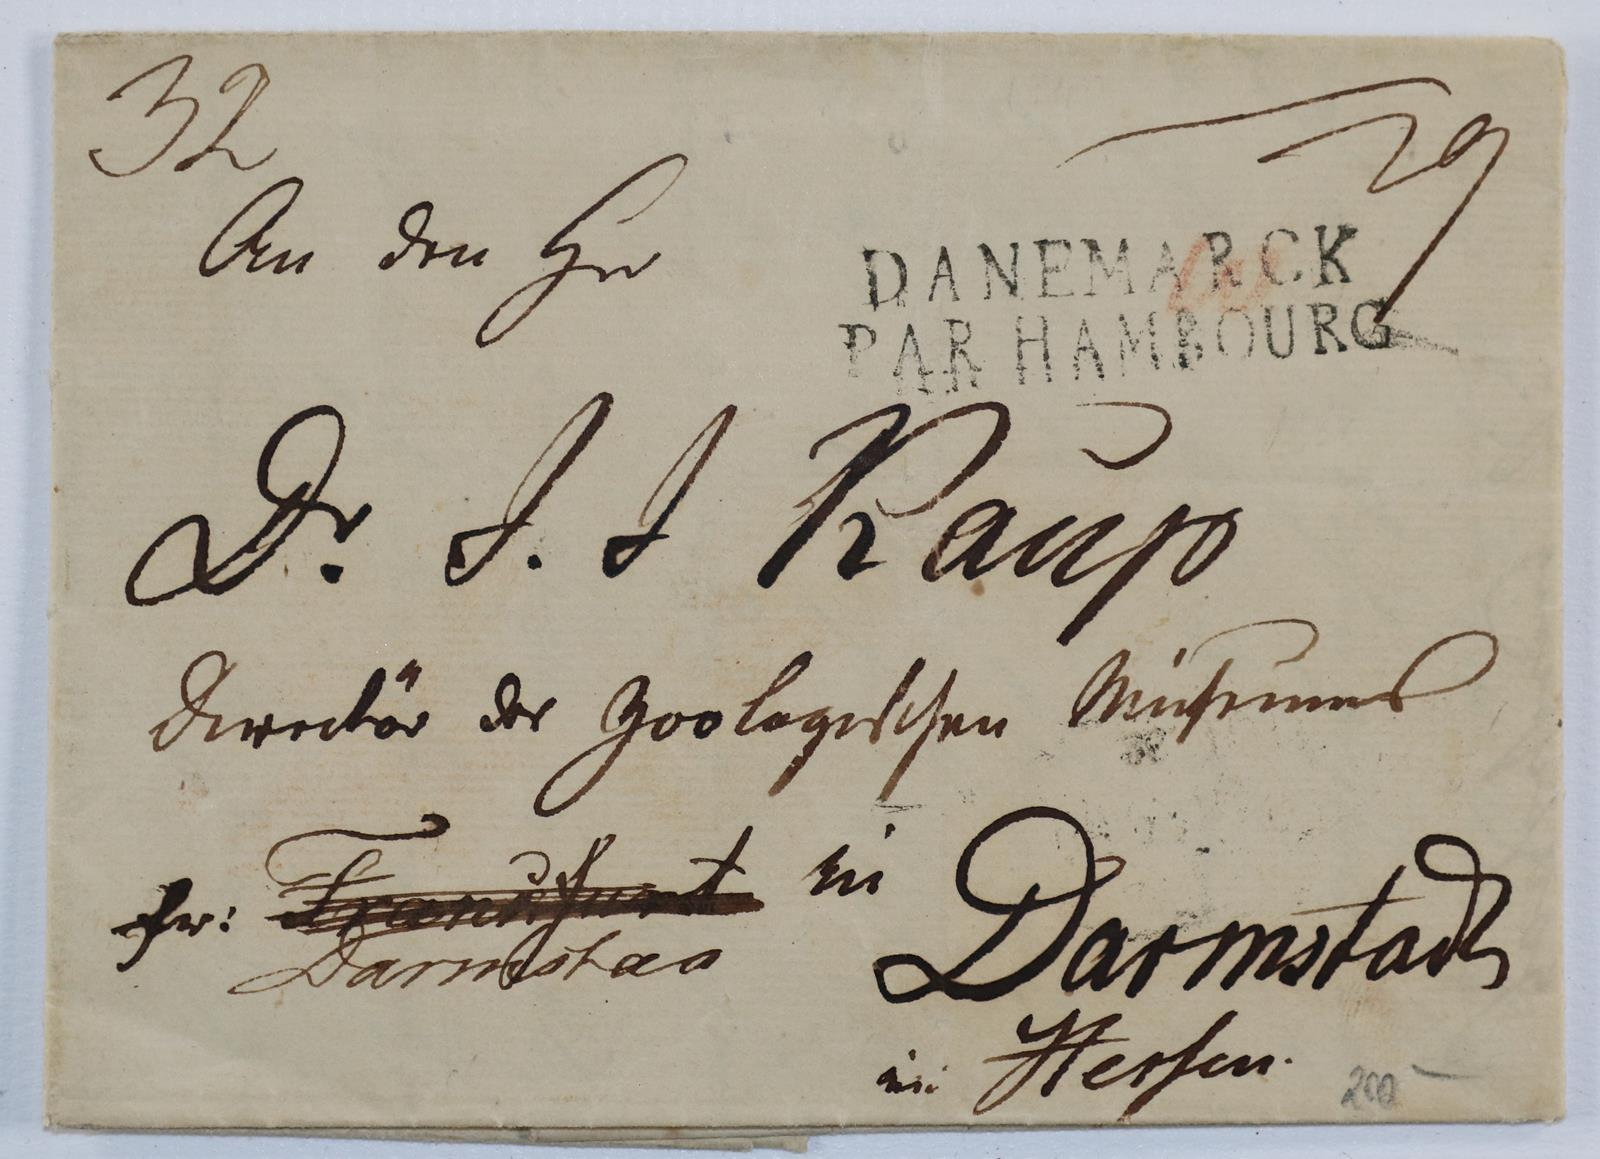 32
29
An den Hr
DANEMARCK
PAR HAMBOURG
Dr. J. J Kaup
Director der Zoologischen Museums
fr: Frankfurt in Darmstadt
Darmstad
in Hessen.
200